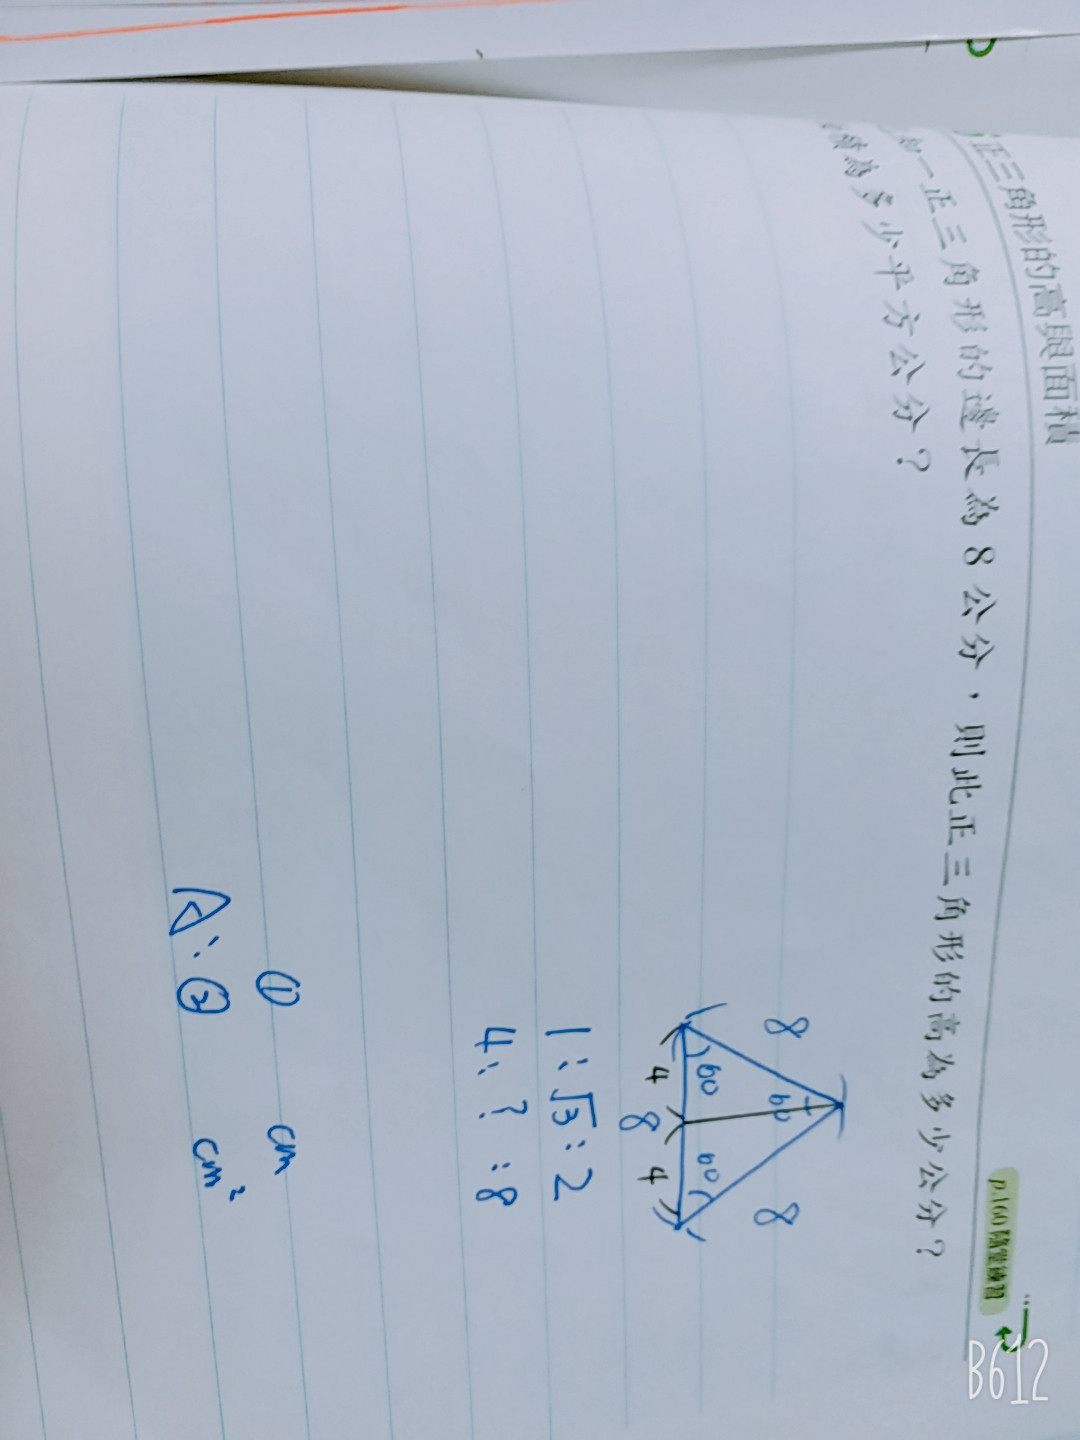 正三角形的高與面積
p.160隨堂練習
知一正三角形的邊長為8公分，則此正三角形的高為多少公分？
積為多少平方公分？
8
8
60
60
60
4
4
8
1:√3:2
4:?:8
① cm
A:② cm²
B612